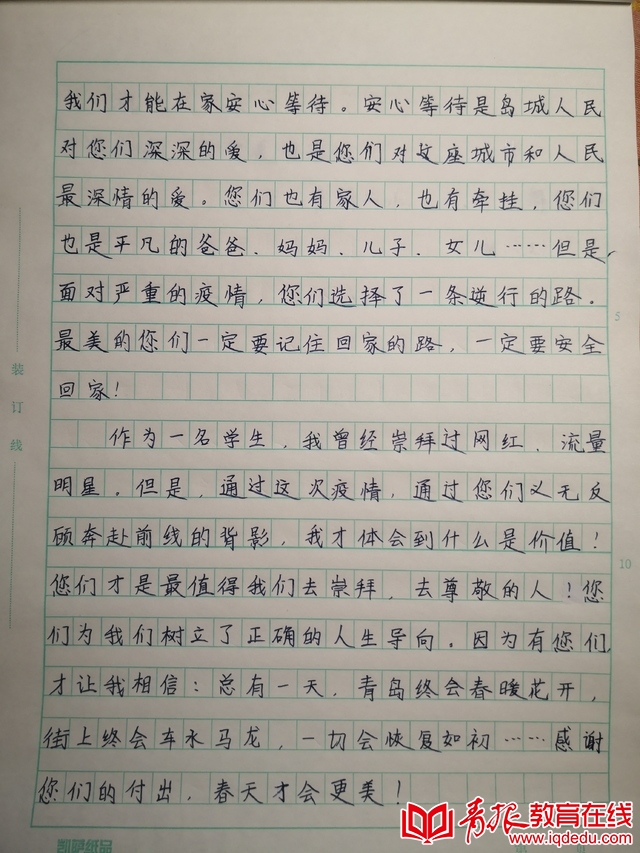 我们才能在家安心等待。安心等待是岛城人民
对您们深深的爱,也是您们对这座城市和人民
最深情的爱。您们也有家人,也有牵挂,您们
也是平凡的爸爸、妈妈、儿子、女儿……但是,
面对严重的疫情,您们选择了一条逆行的路。
最美的您们一定要记住回家的路,一定要安全
回家!
作为一名学生,我曾经崇拜过网红、流量
明星。但是,通过这次疫情,通过您们义无反
顾奔赴前线的背影,我才体会到什么是价值!
您们才是最值得我们去崇拜,去尊敬的人!您
们为我们树立了正确的人生导向。因为有您们,
才让我相信:总有一天,青岛终会春暖花开,
街上终会车水马龙,一切会恢复如初……感谢
您们的付出,春天才会更美!
装订线
5
10
凯萨纸品
青报教育在线
www.iqdedu.com